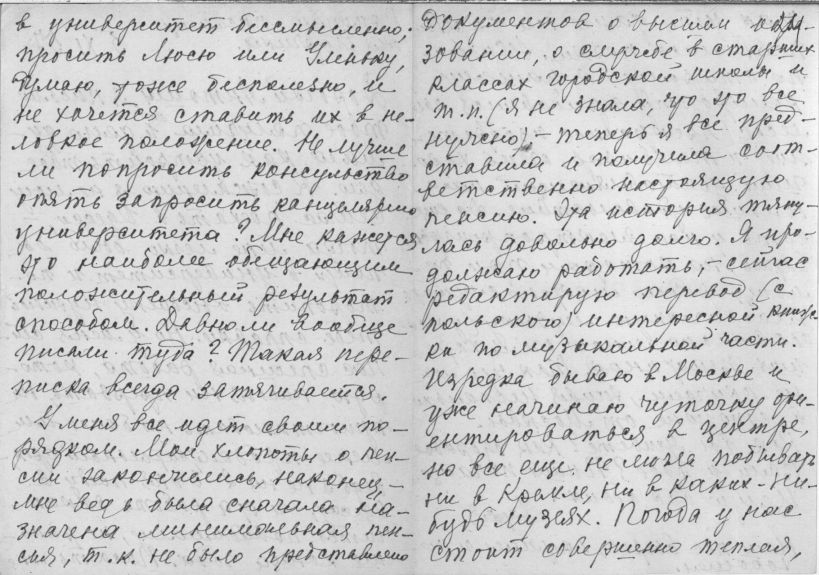 в университет бессмысленно;
просить Люсю или Уленьку,
думаю, тоже бесполезно, и
не хочется ставить их в не-
ловкое положение. Не лучше
ли попросить консульство
опять запросить канцелярию
университета? Мне кажется
это наиболее обещающим
положительный результат
способом. Давно ли вообще
писали туда? Такая пере-
писка всегда затягивается.
У меня все идет своим по-
рядком. Мои хлопоты о пен-
сии закончились, наконец, –
мне ведь была сначала на-
значена минимальная пен-
сия, т.к. не было представлено
документов о высшем обра-
зовании, о службе в старших
классах городской школы и
т.п. (я не знала, что это все
нужно) – теперь я все пред-
ставила и получила соот-
ветственно настоящую
пенсию. Эта история тяну-
лась довольно долго. Я про-
должаю работать, – сейчас
редактирую перевод (с
польского) интересной книж-
ки по музыкальной части.
Изредка бываю в Москве и
уже начинаю чуточку ори-
ентироваться в центре,
но все еще не могла побывать
ни в Кремле, ни в каких-ни-
будь музеях. Погода у нас
стоит совершенно теплая,